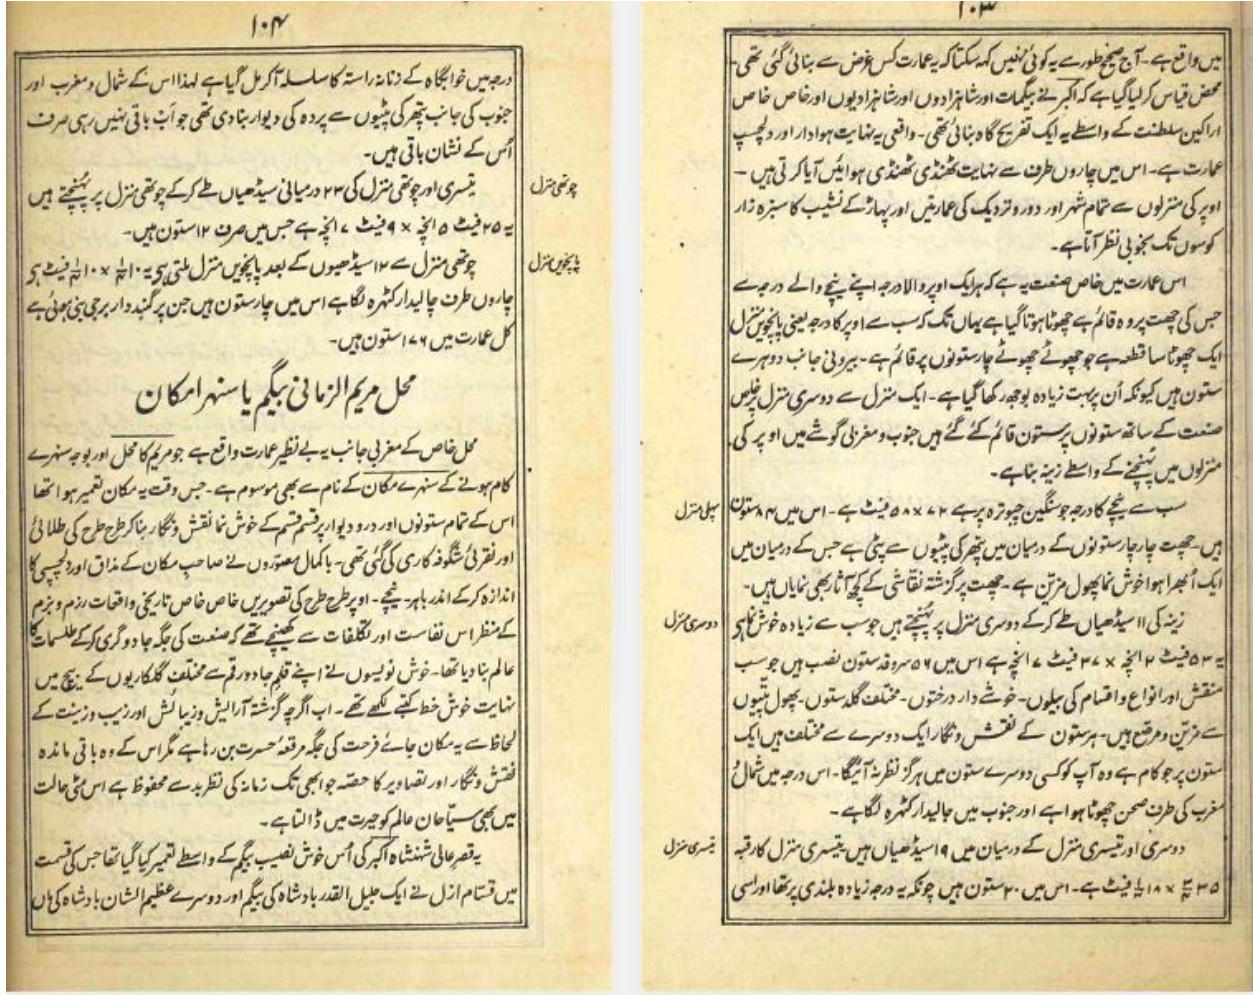 ۱۰۳
میں واقع ہے۔ آج صحیح طور سے یہ کوئی نہیں کہہ سکتا کہ یہ عمارت کس غرض سے بنائی گئی تھی۔
محض قیاس کر لیا گیا ہے کہ اکبر نے بیگمات اور شاہزادوں اور شاہزادیوں اور خاص خاص
اراکین سلطنت کے واسطے یہ ایک تفریح گاہ بنائی تھی۔ واقعی یہ نہایت ہوادار اور دلچسپ
عمارت ہے۔ اس میں چاروں طرف سے نہایت ٹھنڈی ٹھنڈی ہوائیں آیا کرتی ہیں۔
اوپر کی منزلوں سے تمام شہر اور دور و نزدیک کی عمارتیں اور پہاڑ کے نشیب کا سبزہ زار
کوسوں تک بخوبی نظر آتا ہے۔
اس عمارت میں خاص صنعت یہ ہے کہ ہر ایک اوپر والا درجہ اپنے نیچے والے درجہ سے
جس کی چھت پر وہ قائم ہے چھوٹا ہوتا گیا ہے یہاں تک کہ سب سے اوپر کا درجہ یعنی پانچویں منزل
ایک چھوٹا سا قطعہ ہے جو چھوٹے چھوٹے چار ستونوں پر قائم ہے۔ بیرونی جانب دوہرے
ستون ہیں کیونکہ اُن پر بہت زیادہ بوجھ رکھا گیا ہے۔ ایک منزل سے دوسری منزل پر خاص
صنعت کے ساتھ ستونوں پر ستون قائم کئے گئے ہیں جنوب و مغربی گوشے میں اوپر کی
منزلوں میں پہنچنے کے واسطے زینہ بنا ہے۔
پہلی منزل
سب سے نیچے کا درجہ جو سنگین چبوترہ پر ہے ۷۲ × ۵۸ فیٹ ہے۔ اس میں ۸۴ ستون
ہیں۔ چھت چار چار ستونوں کے درمیان میں پتھر کی پٹیوں سے پٹی ہے جس کے درمیان میں
ایک اُبھرا ہوا خوش نما پھول مزین ہے۔ چھت پر گزشتہ نقاشی کے کچھ آثار بھی نمایاں ہیں۔
دوسری منزل
زینہ کی ۱۱ سیڑھیاں طے کر کے دوسری منزل پر پہنچتے ہیں جو سب سے زیادہ خوش نما ہے
یہ ۵۳ فیٹ ۲ انچہ × ۳۷ فیٹ ۷ انچہ ہے اس میں ۵۶ سرو قد ستون نصب ہیں جو سب
منقش اور انواع و اقسام کی بیلوں۔ خوشے دار درختوں۔ مختلف گلدستوں۔ پھول پتیوں
سے مزین و مرقع ہیں۔ ہر ستون کے نقش و نگار ایک دوسرے سے مختلف ہیں ایک
ستون پر جو کام ہے وہ آپ کو کسی دوسرے ستون میں ہرگز نظر نہ آئیگا۔ اس درجہ میں شمال
مغرب کی طرف صحن چھوٹا ہوا ہے اور جنوب میں جالیدار کٹہرہ لگا ہے۔
تیسری منزل
دوسری اور تیسری منزل کے درمیان میں ۱۹ سیڑھیاں ہیں تیسری منزل کا رقبہ
۳۵ × ۱۸ فیٹ ہے۔ اس میں ۲۰ ستون ہیں چونکہ یہ درجہ زیادہ بلندی پر تھا اور اسی
۱۰۴
درجہ میں خوابگاہ کے زنانہ راستہ کا سلسلہ آکر مل گیا ہے لہذا اس کے شمال و مغرب اور
جنوب کی جانب پتھر کی پٹیوں سے پردہ کی دیوار بنا دی تھی جو اَب باقی نہیں رہی صرف
اُس کے نشان باقی ہیں۔
چوتھی منزل
تیسری اور چوتھی منزل کی ۲۳ درمیانی سیڑھیاں طے کر کے چوتھی منزل پر پہنچتے ہیں
یہ ۲۵ فیٹ ۵ انچہ × ۹ فیٹ ۷ انچہ ہے جس میں صرف ۱۲ ستون ہیں۔
پانچویں منزل
چوتھی منزل سے ۱۲ سیڑھیوں کے بعد پانچویں منزل ملتی ہے یہ ۱۰ × ۱۰ فیٹ ہے
چاروں طرف جالیدار کٹہرہ لگا ہے اس میں چار ستون ہیں جن پر گنبد دار برجی بنی ہوئی ہے
کل عمارت میں ۱۷۶ ستون ہیں۔
محل مریم الزمانی بیگم یا سنہرا مکان
محل خاص کے مغربی جانب یہ بے نظیر عمارت واقع ہے جو مریم کا محل اور بوجہ سنہرے
کام ہونے کے سنہرے مکان کے نام سے بھی موسوم ہے۔ جس وقت یہ مکان تعمیر ہوا تھا
اس کے تمام ستونوں اور در و دیوار پر قسم قسم کے خوش نما نقش و نگار بنا کر طرح طرح کی طلائی
اور نقرئی شگوفہ کاری کی گئی تھی۔ باکمال مصوّروں نے صاحبِ مکان کے مذاق اور دلچسپی کا
اندازہ کر کے اندر باہر۔ نیچے۔ اوپر طرح طرح کی تصویریں خاص خاص تاریخی واقعات رزم و بزم
کے منظر اس نفاست اور تکلفات سے کھینچے تھے کہ صنعت کی جگہ جادوگری کر کے طلسمات کا
عالم بنا دیا تھا۔ خوش نویسوں نے اپنے قلم جادو رقم سے مختلف گلکاریوں کے بیچ میں
نہایت خوش خط کتبے لکھے تھے۔ اب اگرچہ گزشتہ آرائش و زیبائش اور زیب و زینت کے
لحاظ سے یہ مکان جائے فرحت کی جگہ مرقعۂ حسرت بن رہا ہے مگر اس کے وہ باقی ماندہ
نقش و نگار اور تصاویر کا حصّہ جو ابھی تک زمانہ کی نظرِ بد سے محفوظ ہے اس مٹی حالت
میں بھی سیّاحان عالم کو حیرت میں ڈالتا ہے۔
یہ قصر عالی شہنشاہ اکبر کی اُس خوش نصیب بیگم کے واسطے تعمیر کیا گیا تھا جس کی قسمت
میں قسام ازل نے ایک جلیل القدر بادشاہ کی بیگم اور دوسرے عظیم الشان بادشاہ کی ماں